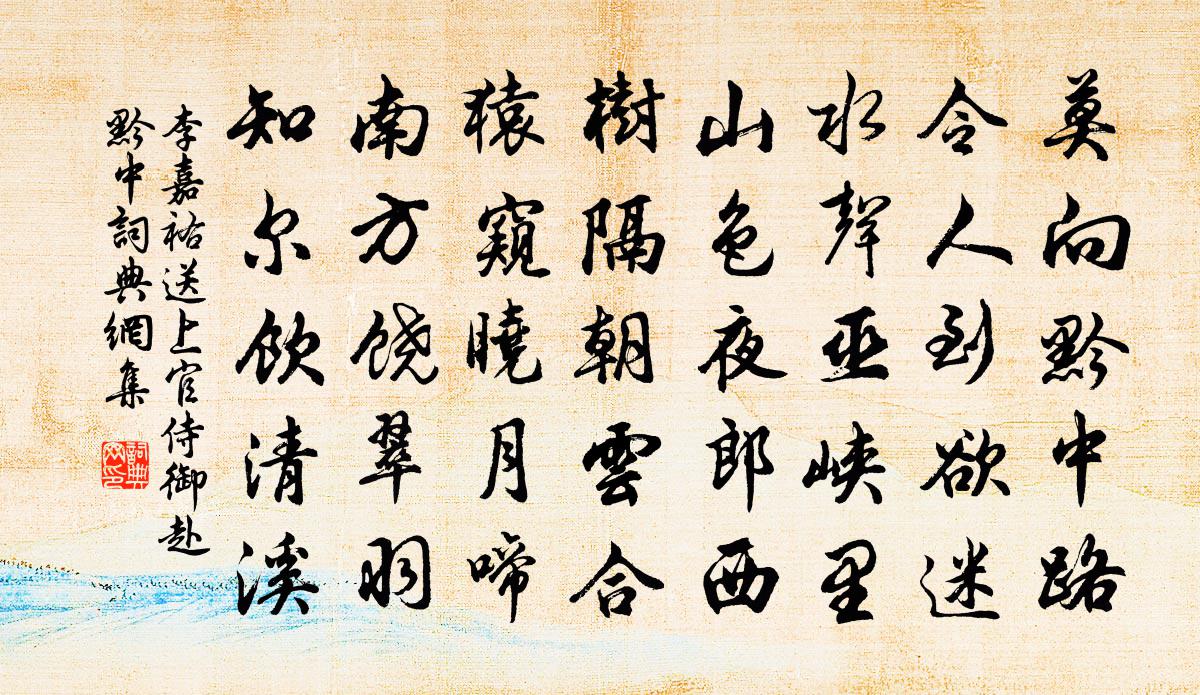 莫向黔中路
令人到欲迷
水聲巫峽里
山色夜郎西
樹隔朝雲合
猿窺曉月啼
南方饶翠羽
知尔飲清溪
李嘉祐送上官侍御赴
黔中詞典網集
詞典网印